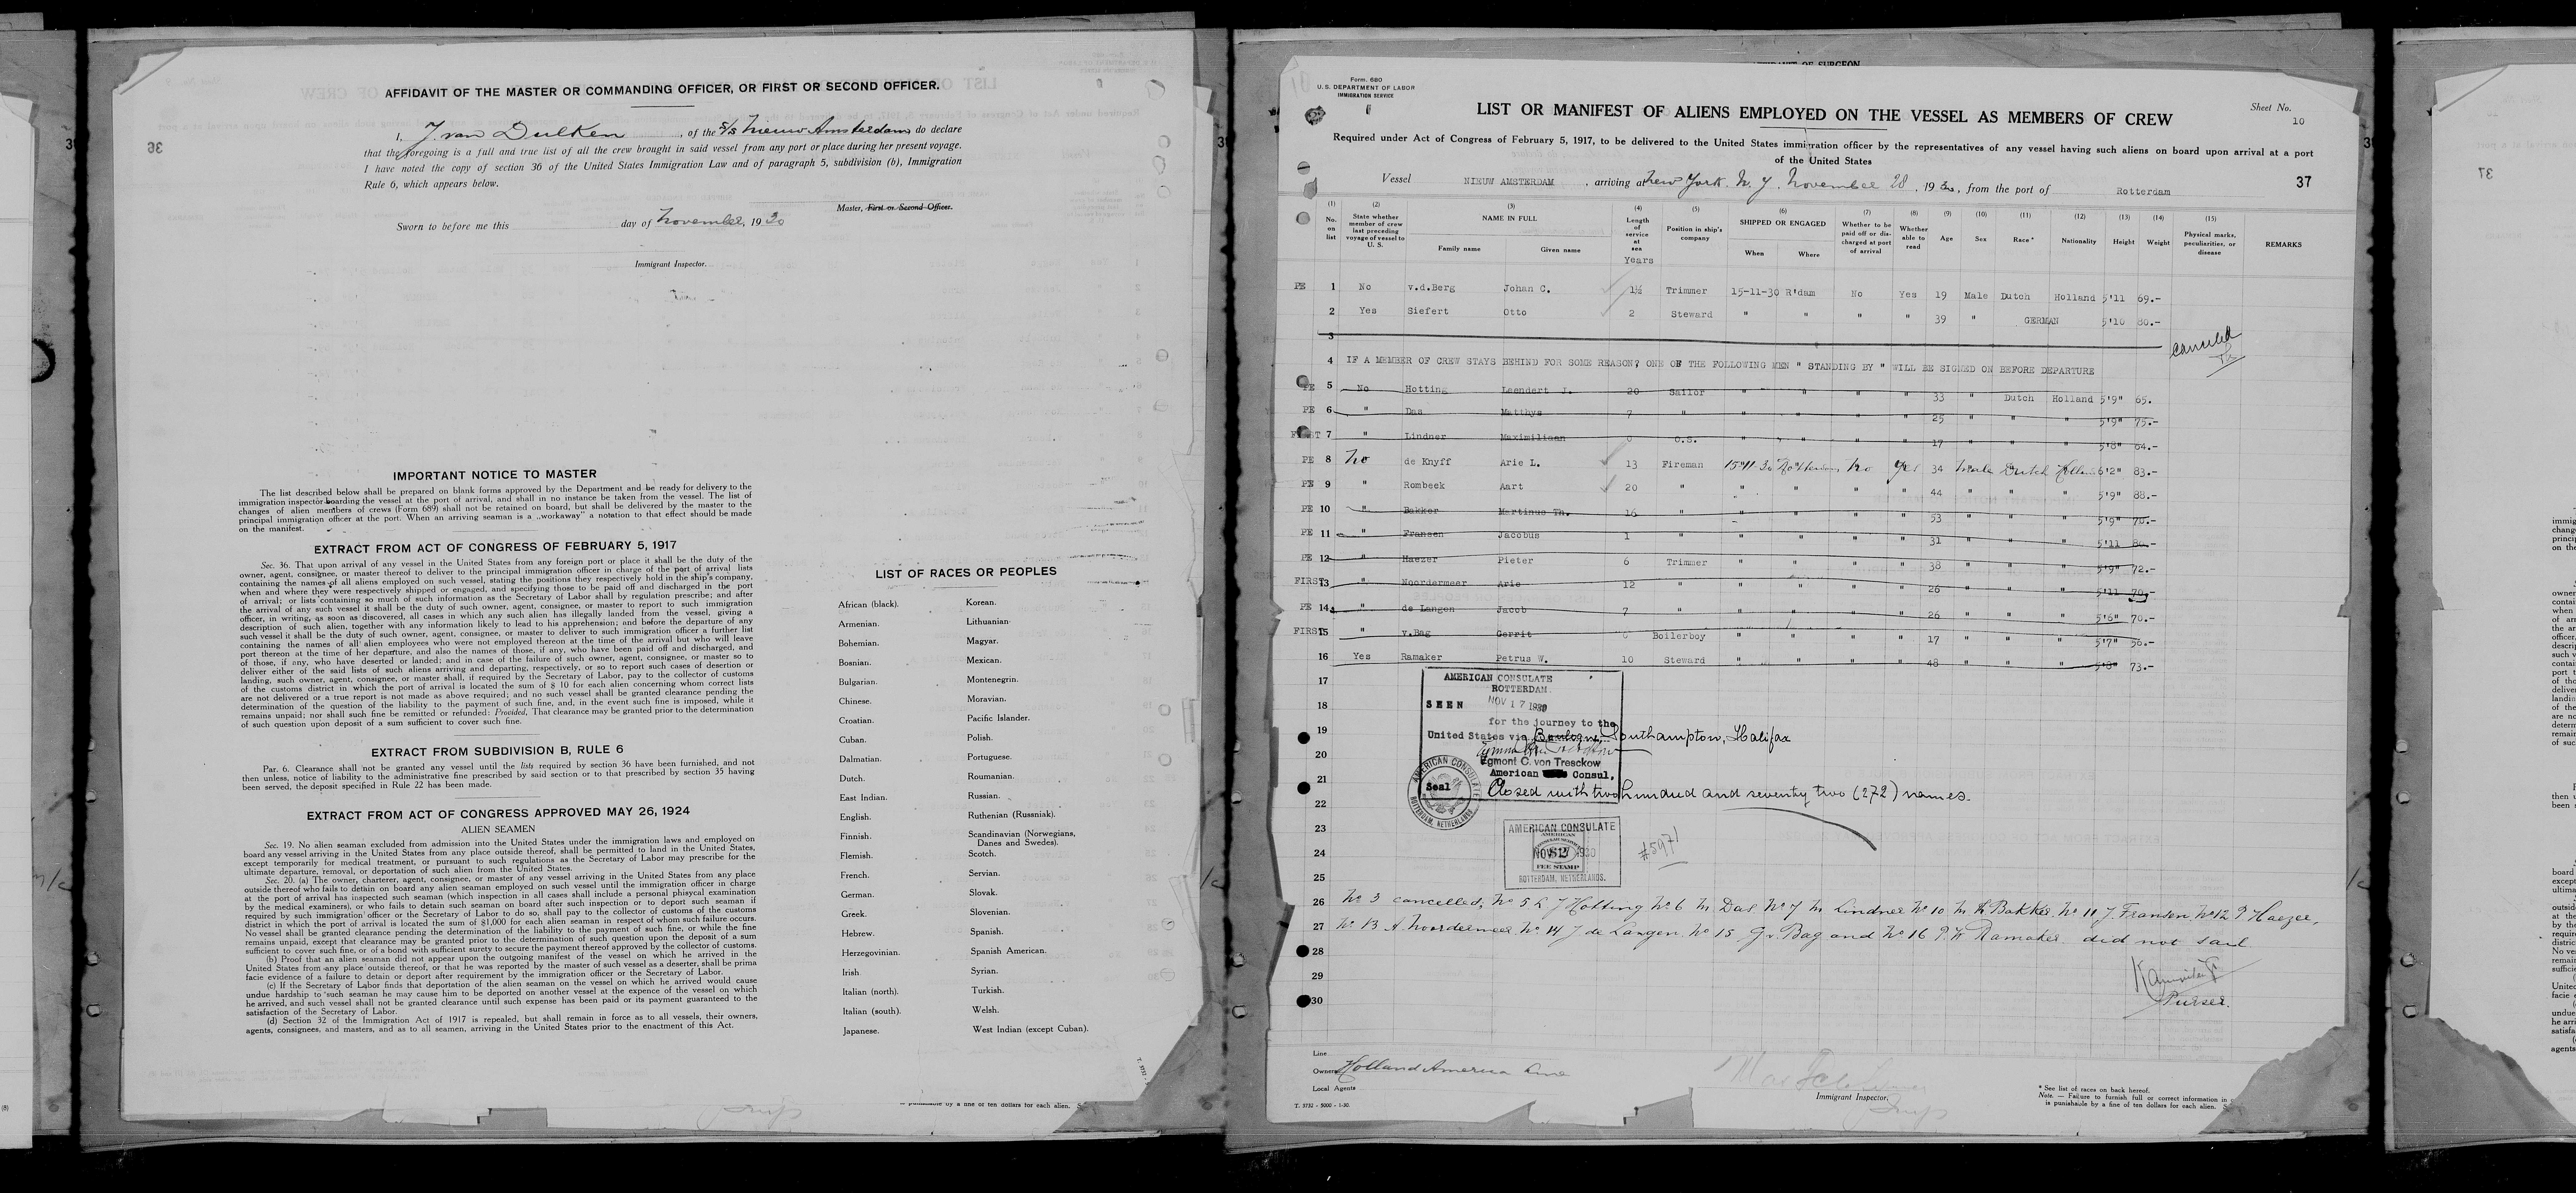 AFFIDAVIT OF THE MASTER OR COMMANDING OFFICER, OR FIRST OR SECOND OFFICER.
I, J. van Dulken, of the s/s Nieuw Amsterdam do declare
that the foregoing is a full and true list of all the crew brought in said vessel from any port or place during her present voyage.
I have noted the copy of section 36 of the United States Immigration Law and of paragraph 5, subdivision (b), Immigration
Rule 6, which appears below.
Master, First or Second Officer.
Sworn to before me this day of November, 1930
Immigrant Inspector.
IMPORTANT NOTICE TO MASTER
The list described below shall be prepared on blank forms approved by the Department and be ready for delivery to the
immigration inspector boarding the vessel at the port of arrival, and shall in no instance be taken from the vessel. The list of
changes of alien members of crews (Form 689) shall not be retained on board, but shall be delivered by the master to the
principal immigration officer at the port. When an arriving seaman is a „workaway” a notation to that effect should be made
on the manifest.
EXTRACT FROM ACT OF CONGRESS OF FEBRUARY 5, 1917
Sec. 36. That upon arrival of any vessel in the United States from any foreign port or place it shall be the duty of the
owner, agent, consignee, or master thereof to deliver to the principal immigration officer in charge of the port of arrival lists
containing the names of all aliens employed on such vessel, stating the positions they respectively hold in the ship's company,
when and where they were respectively shipped or engaged, and specifying those to be paid off and discharged in the port
of arrival; or lists containing so much of such information as the Secretary of Labor shall by regulation prescribe; and after
the arrival of any such vessel it shall be the duty of such owner, agent, consignee, or master to report to such immigration
officer, in writing, as soon as discovered, all cases in which any such alien has illegally landed from the vessel, giving a
description of such alien, together with any information likely to lead to his apprehension; and before the departure of any
such vessel it shall be the duty of such owner, agent, consignee, or master to deliver to such immigration officer a further list
containing the names of all alien employees who were not employed thereon at the time of the arrival but who will leave
port thereon at the time of her departure, and also the names of those, if any, who have been paid off and discharged, and
of those, if any, who have deserted or landed; and in case of the failure of such owner, agent, consignee, or master so to
deliver either of the said lists of such aliens arriving and departing, respectively, or so to report such cases of desertion or
landing, such owner, agent, consignee, or master shall, if required by the Secretary of Labor, pay to the collector of customs
of the customs district in which the port of arrival is located the sum of $ 10 for each alien concerning whom correct lists
are not delivered or a true report is not made as above required; and no such vessel shall be granted clearance pending the
determination of the question of the liability to the payment of such fine, and, in the event such fine is imposed, while it
remains unpaid; nor shall such fine be remitted or refunded: Provided, That clearance may be granted prior to the determination
of such question upon deposit of a sum sufficient to cover such fine.
EXTRACT FROM SUBDIVISION B, RULE 6
Par. 6. Clearance shall not be granted any vessel until the lists required by section 36 have been furnished, and not
then unless, notice of liability to the administrative fine prescribed by said section or to that prescribed by section 35 having
been served, the deposit specified in Rule 22 has been made.
EXTRACT FROM ACT OF CONGRESS APPROVED MAY 26, 1924
ALIEN SEAMEN
Sec. 19. No alien seaman excluded from admission into the United States under the immigration laws and employed on
board any vessel arriving in the United States from any place outside thereof, shall be permitted to land in the United States,
except temporarily for medical treatment, or pursuant to such regulations as the Secretary of Labor may prescribe for the
ultimate departure, removal, or deportation of such alien from the United States.
Sec. 20. (a) The owner, charterer, agent, consignee, or master of any vessel arriving in the United States from any place
outside thereof who fails to detain on board any alien seaman employed on such vessel until the immigration officer in charge
at the port of arrival has inspected such seaman (which inspection in all cases shall include a personal phisycal examination
by the medical examiners), or who fails to detain such seaman on board after such inspection or to deport such seaman if
required by such immigration officer or the Secretary of Labor to do so, shall pay to the collector of customs of the customs
district in which the port of arrival is located the sum of $1,000 for each alien seaman in respect of whom such failure occurs.
No vessel shall be granted clearance pending the determination of the liability to the payment of such fine, or while the fine
remains unpaid, except that clearance may be granted prior to the determination of such question upon the deposit of a sum
sufficient to cover such fine, or of a bond with sufficient surety to secure the payment thereof approved by the collector of customs.
(b) Proof that an alien seaman did not appear upon the outgoing manifest of the vessel on which he arrived in the
United States from any place outside thereof, or that he was reported by the master of such vessel as a deserter, shall be prima
facie evidence of a failure to detain or deport after requirement by the immigration officer or the Secretary of Labor.
(c) If the Secretary of Labor finds that deportation of the alien seaman on the vessel on which he arrived would cause
undue hardship to such seaman he may cause him to be deported on another vessel at the expence of the vessel on which
he arrived, and such vessel shall not be granted clearance until such expense has been paid or its payment guaranteed to the
satisfaction of the Secretary of Labor.
(d) Section 32 of the Immigration Act of 1917 is repealed, but shall remain in force as to all vessels, their owners,
agents, consignees, and masters, and as to all seamen, arriving in the United States prior to the enactment of this Act.
LIST OF RACES OR PEOPLES
African (black). Korean.
Armenian. Lithuanian.
Bohemian. Magyar.
Bosnian. Mexican.
Bulgarian. Montenegrin.
Chinese. Moravian.
Croatian. Pacific Islander.
Cuban. Polish.
Dalmatian. Portuguese.
Dutch. Roumanian.
East Indian. Russian.
English. Ruthenian (Russniak).
Finnish. Scandinavian (Norwegians, Danes and Swedes).
Flemish. Scotch.
French. Servian.
German. Slovak.
Greek. Slovenian.
Hebrew. Spanish.
Herzegovinian. Spanish American.
Irish Syrian.
Italian (north). Turkish.
Italian (south). Welsh.
Japanese. West Indian (except Cuban).
Form. 680
U. S. DEPARTMENT OF LABOR
IMMIGRATION SERVICE
LIST OR MANIFEST OF ALIENS EMPLOYED ON THE VESSEL AS MEMBERS OF CREW
Sheet No. 10
Required under Act of Congress of February 5, 1917, to be delivered to the United States immigration officer by the representatives of any vessel having such aliens on board upon arrival at a port
of the United States
Vessel NIEUW AMSTERDAM, arriving at New York. N. Y. November 28, 1930, from the port of Rotterdam
37
(1) (2) (3) (4) (5) (6) (7) (8) (9) (10) (11) (12) (13) (14) (15)
No. on list State whether member of crew last preceding voyage of vessel to U. S. NAME IN FULL Family name Given name Length of service at sea Years Position in ship's company SHIPPED OR ENGAGED When Where Whether to be paid off or discharged at port of arrival Whether able to read Age Sex Race* Nationality Height Weight Physical marks, peculiarities, or disease REMARKS
PE 1 No v.d.Berg Johan C. 1½ Trimmer 15-11-30 R'dam No Yes 19 Male Dutch Holland 5'11 69.-
2 Yes Siefert Otto 2 Steward " " " " 39 " GERMAN 5'10 80.-
3 canceled
4 IF A MEMBER OF CREW STAYS BEHIND FOR SOME REASON? ONE OF THE FOLLOWING MEN " STANDING BY " WILL BE SIGNED ON BEFORE DEPARTURE
PE 5 No Hotting Leendert J. 20 Sailor " " " " 33 " Dutch Holland 5'9" 65.
PE 6 " Das Matthys 7 " " " " " 25 " " " 5'9" 75.-
FIRST 7 " Lindner Maximiliaan 0 O.S. " " " " 17 " " " 5'8" 64.-
PE 8 No de Knyff Arie L. 13 Fireman 15-11-30 Rotterdam No Yes 34 Male Dutch Holland 6'2" 83.-
PE 9 " Rombeek Aart 20 " " " " " 44 " " " 5'9" 88.-
PE 10 " Bakker Martinus Th. 16 " " " " " 53 " " " 5'9" 70.-
PE 11 " Fransen Jacobus 1 " " " " " 31 " " " 5'11 80.-
PE 12 " Haezer Pieter 6 Trimmer " " " " 38 " " " 5'9" 72.-
FIRST 13 " Noordermeer Arie 12 " " " " " 26 " " " 5'11 70.-
PE 14 " de Langen Jacob 7 " " " " " 26 " " " 5'6" 70.-
FIRST 15 " v.Bag Gerrit 0 Boilerboy " " " " 17 " " " 5'7" 56.-
16 Yes Ramaker Petrus W. 10 Steward " " " " 48 " " " 5'8" 73.-
17
18
19
20
21
22
23
24
25
AMERICAN CONSULATE
ROTTERDAM
SEEN NOV 17 1930
for the journey to the
United States via Boulogne, Southampton, Halifax
Egmont C. von Tresckow
American Consul,
Seal
AMERICAN CONSULATE ROTTERDAM, NETHERLANDS.
Closed with two hundred and seventy two (272) names.
AMERICAN CONSULATE
FEE STAMP
ROTTERDAM, NETHERLANDS.
#5971
26 No 3 cancelled, No 5 L J Hotting No 6 M. Das No 7 M. Lindner No 10 M. Th Bakker. No 11 J. Fransen, No 12 P Haezer,
27 No 13 A. Noordermeer No. 14 J de Langen No 15 G v. Bag and No 16 P. W Ramaker did not sail
28
29
30
Purser.
Line
Owners Holland America Line
Local Agents
T. 3732 - 5000 - 1-30.
Immigrant Inspector.
* See list of races on back hereof.
Note. — Failure to furnish full or correct information in
is punishable by a fine of ten dollars for each alien.